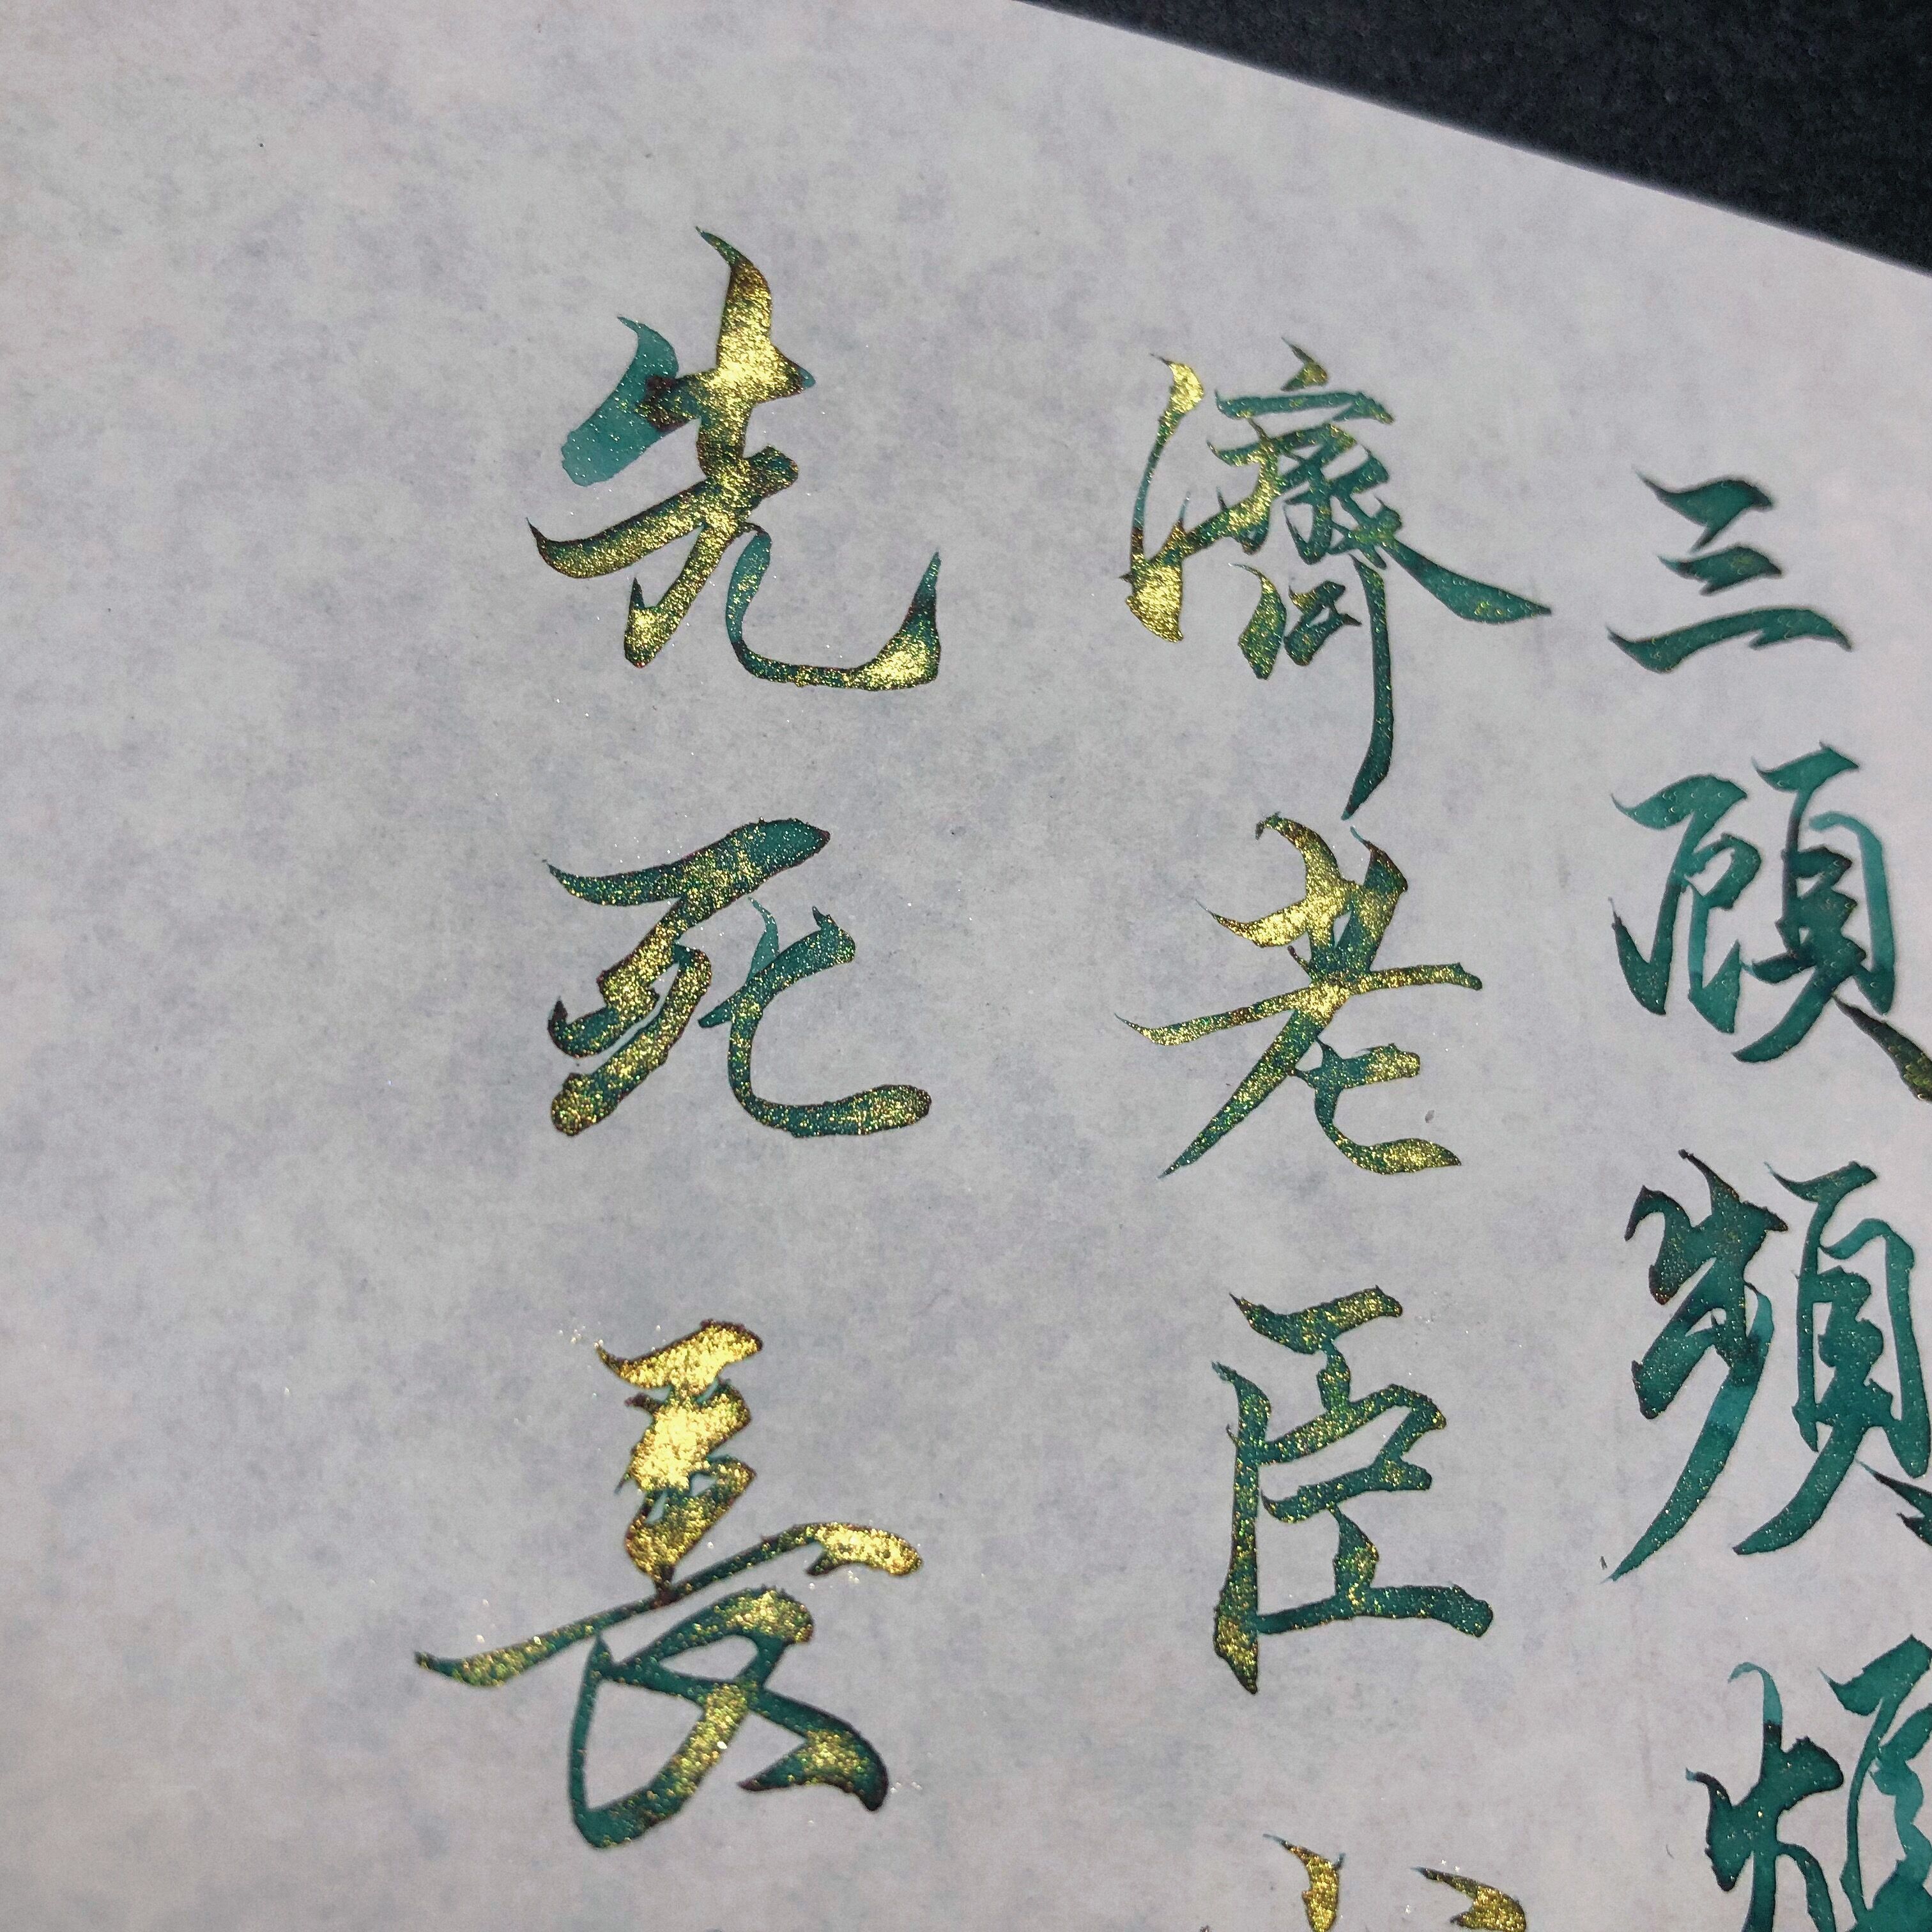 三顧頻煩
濟老臣
先死長